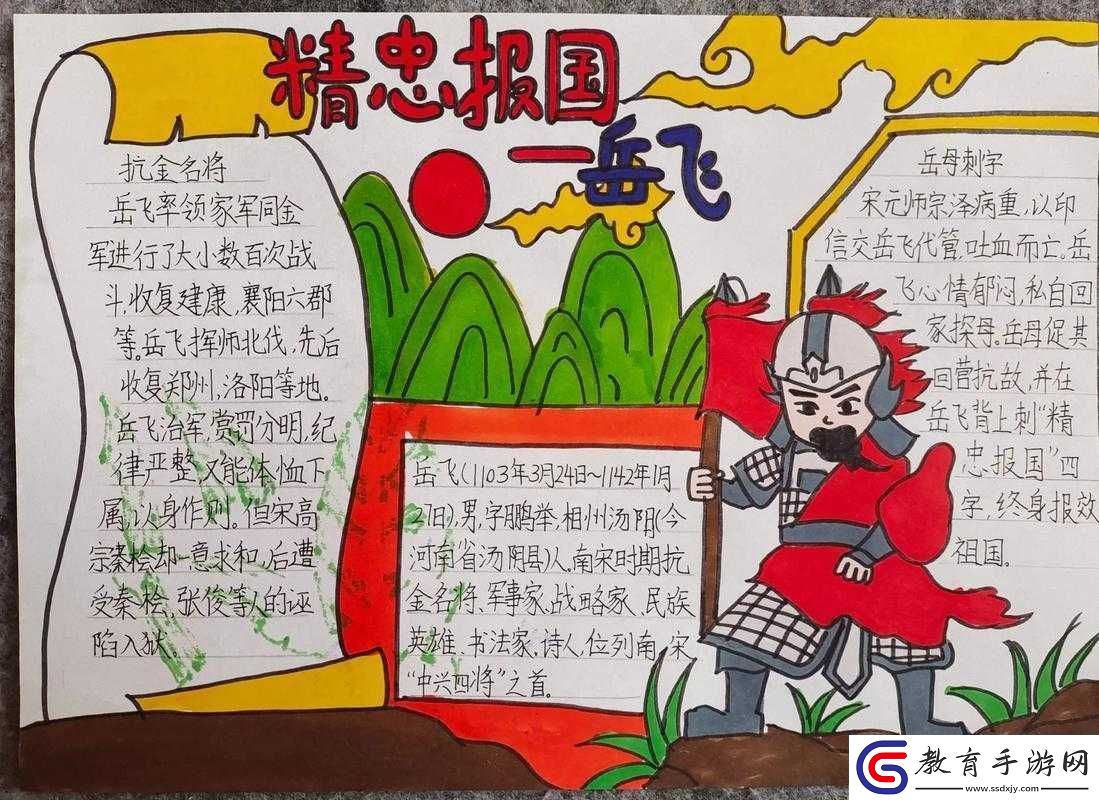 精忠报国
—岳飞
抗金名将
岳飞率领家军同金
军进行了大小数百次战
斗,收复建康,襄阳六郡
等。岳飞挥师北伐,先后
收复郑州,洛阳等地。
岳飞治军,赏罚分明,纪
律严整,又能体恤下
属,以身作则。但宋高
宗秦桧却一意求和,后遭
受秦桧,张俊等人的诬
陷入狱。
岳飞(1103年3月24日~1142年1月
27日),男,字鹏举,相州汤阴(今
河南省汤阴县)人。南宋时期抗
金名将、军事家、战略家、民族
英雄、书法家、诗人,位列南宋
“中兴四将”之首。
岳母刺字
宋元帅宗泽病重,以印
信交岳飞代管,吐血而亡。岳
飞心情郁闷,私自回
家探母。岳母促其
回营抗敌,并在
岳飞背上刺“精
忠报国”四
字,终身报效
祖国。
教育手游网
www.ssdxjy.com